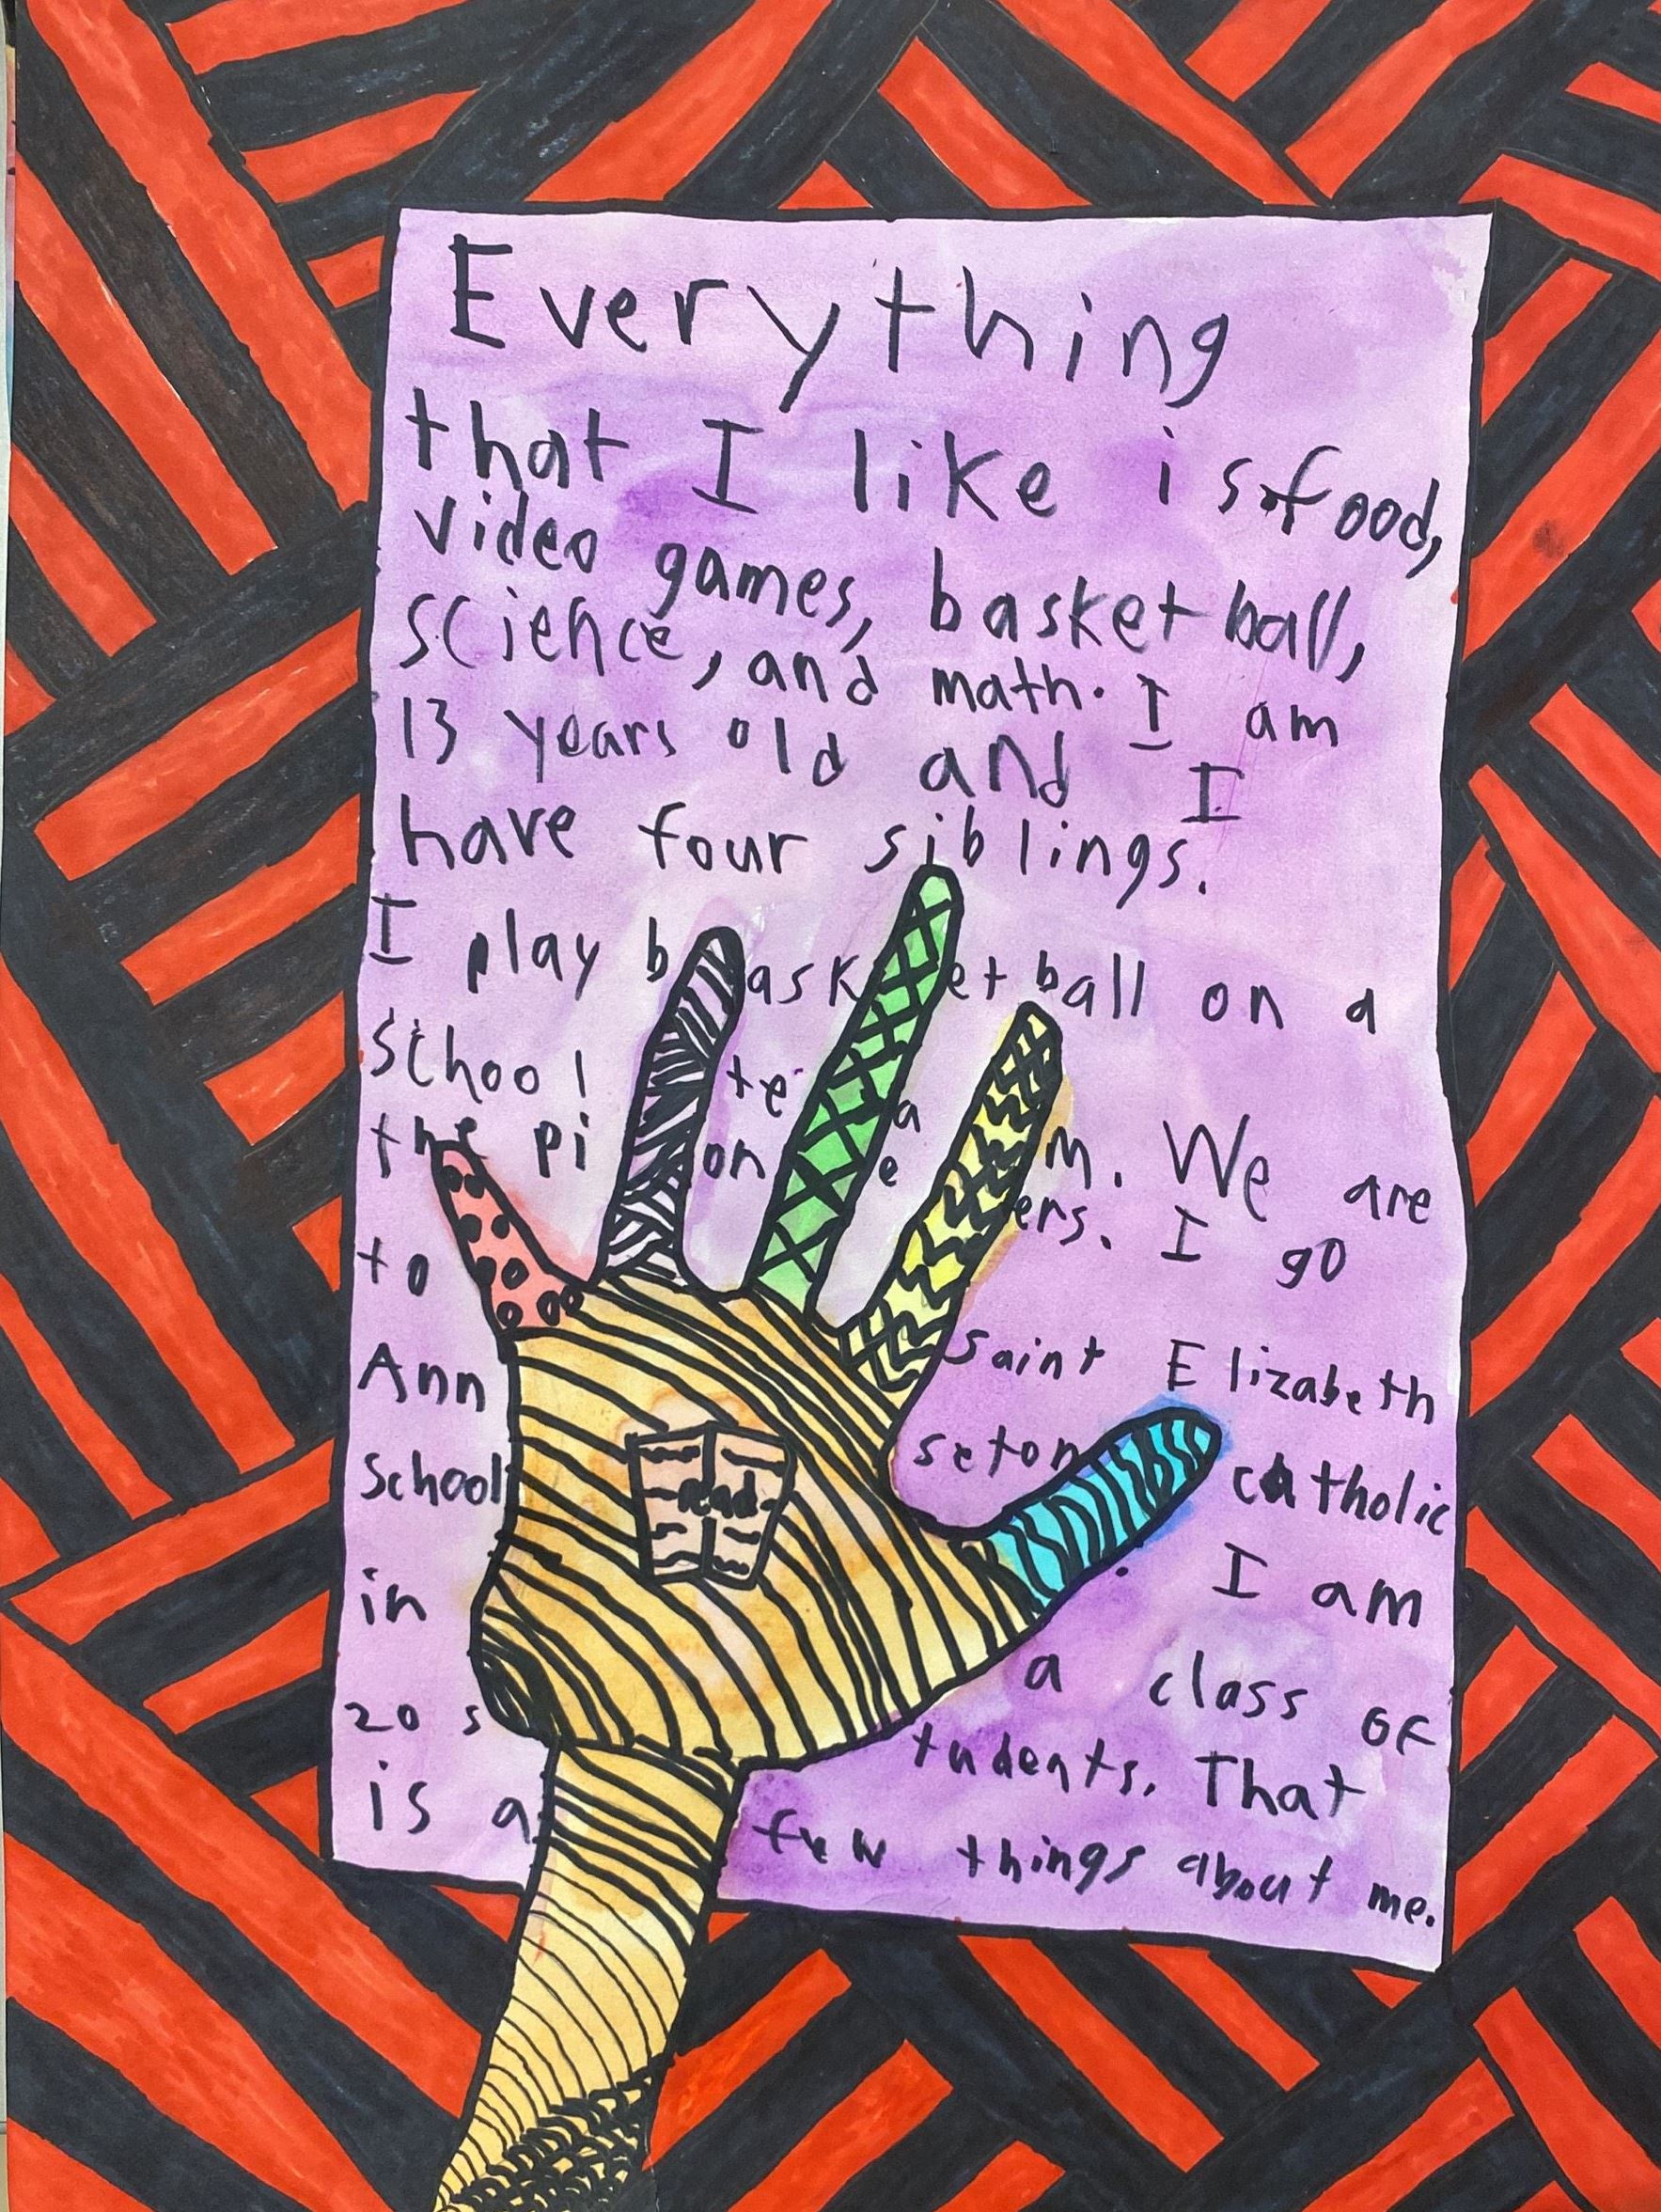 Everything
that I like is food,
video games, basketball,
science, and math. I am
13 years old and I
have four siblings.
I play basketball on a
school team. We are
the pioneers. I go
to saint Elizabeth
Ann seton catholic
School. I am
in a class of
20 students. That
is a few things about me.
read